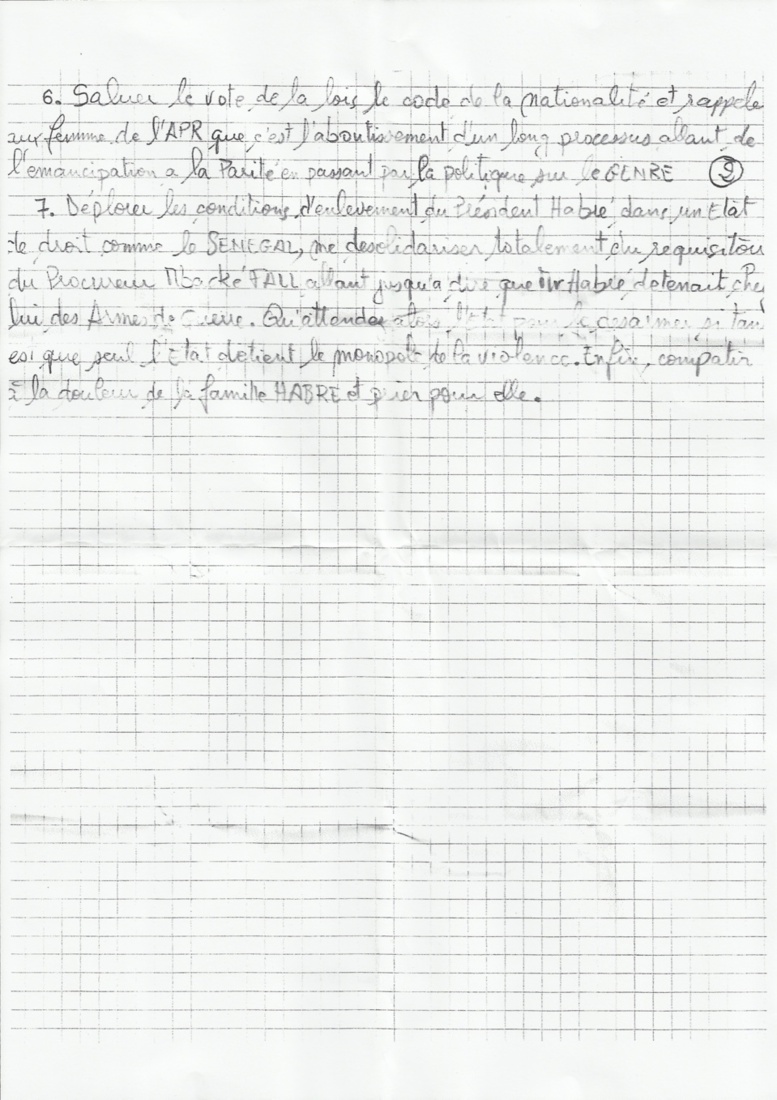 6. Saluer le vote de la lois le code de la nationalité et rappele
aux femme de l'APR que c'est l'aboutissement d'un long processus allant de
l'emancipation a la Parité en passant par la politique sur le GENRE 2
7. Déplorer les conditions d'enlevement du Président Habré dans un Etat
de droit comme le SENEGAL, me desolidariser totalement du requisitoire
du Procureur Mbacké FALL allant jusqu'a dire que Mr Habré detenait chez
lui des Armes de Guerre. Qu'attendait alors l'Etat pour le desarmer si tan
est que seul l'Etat detient le monopole de la violence. Enfin, compatir
à la douleur de la famille HABRE et prier pour elle.